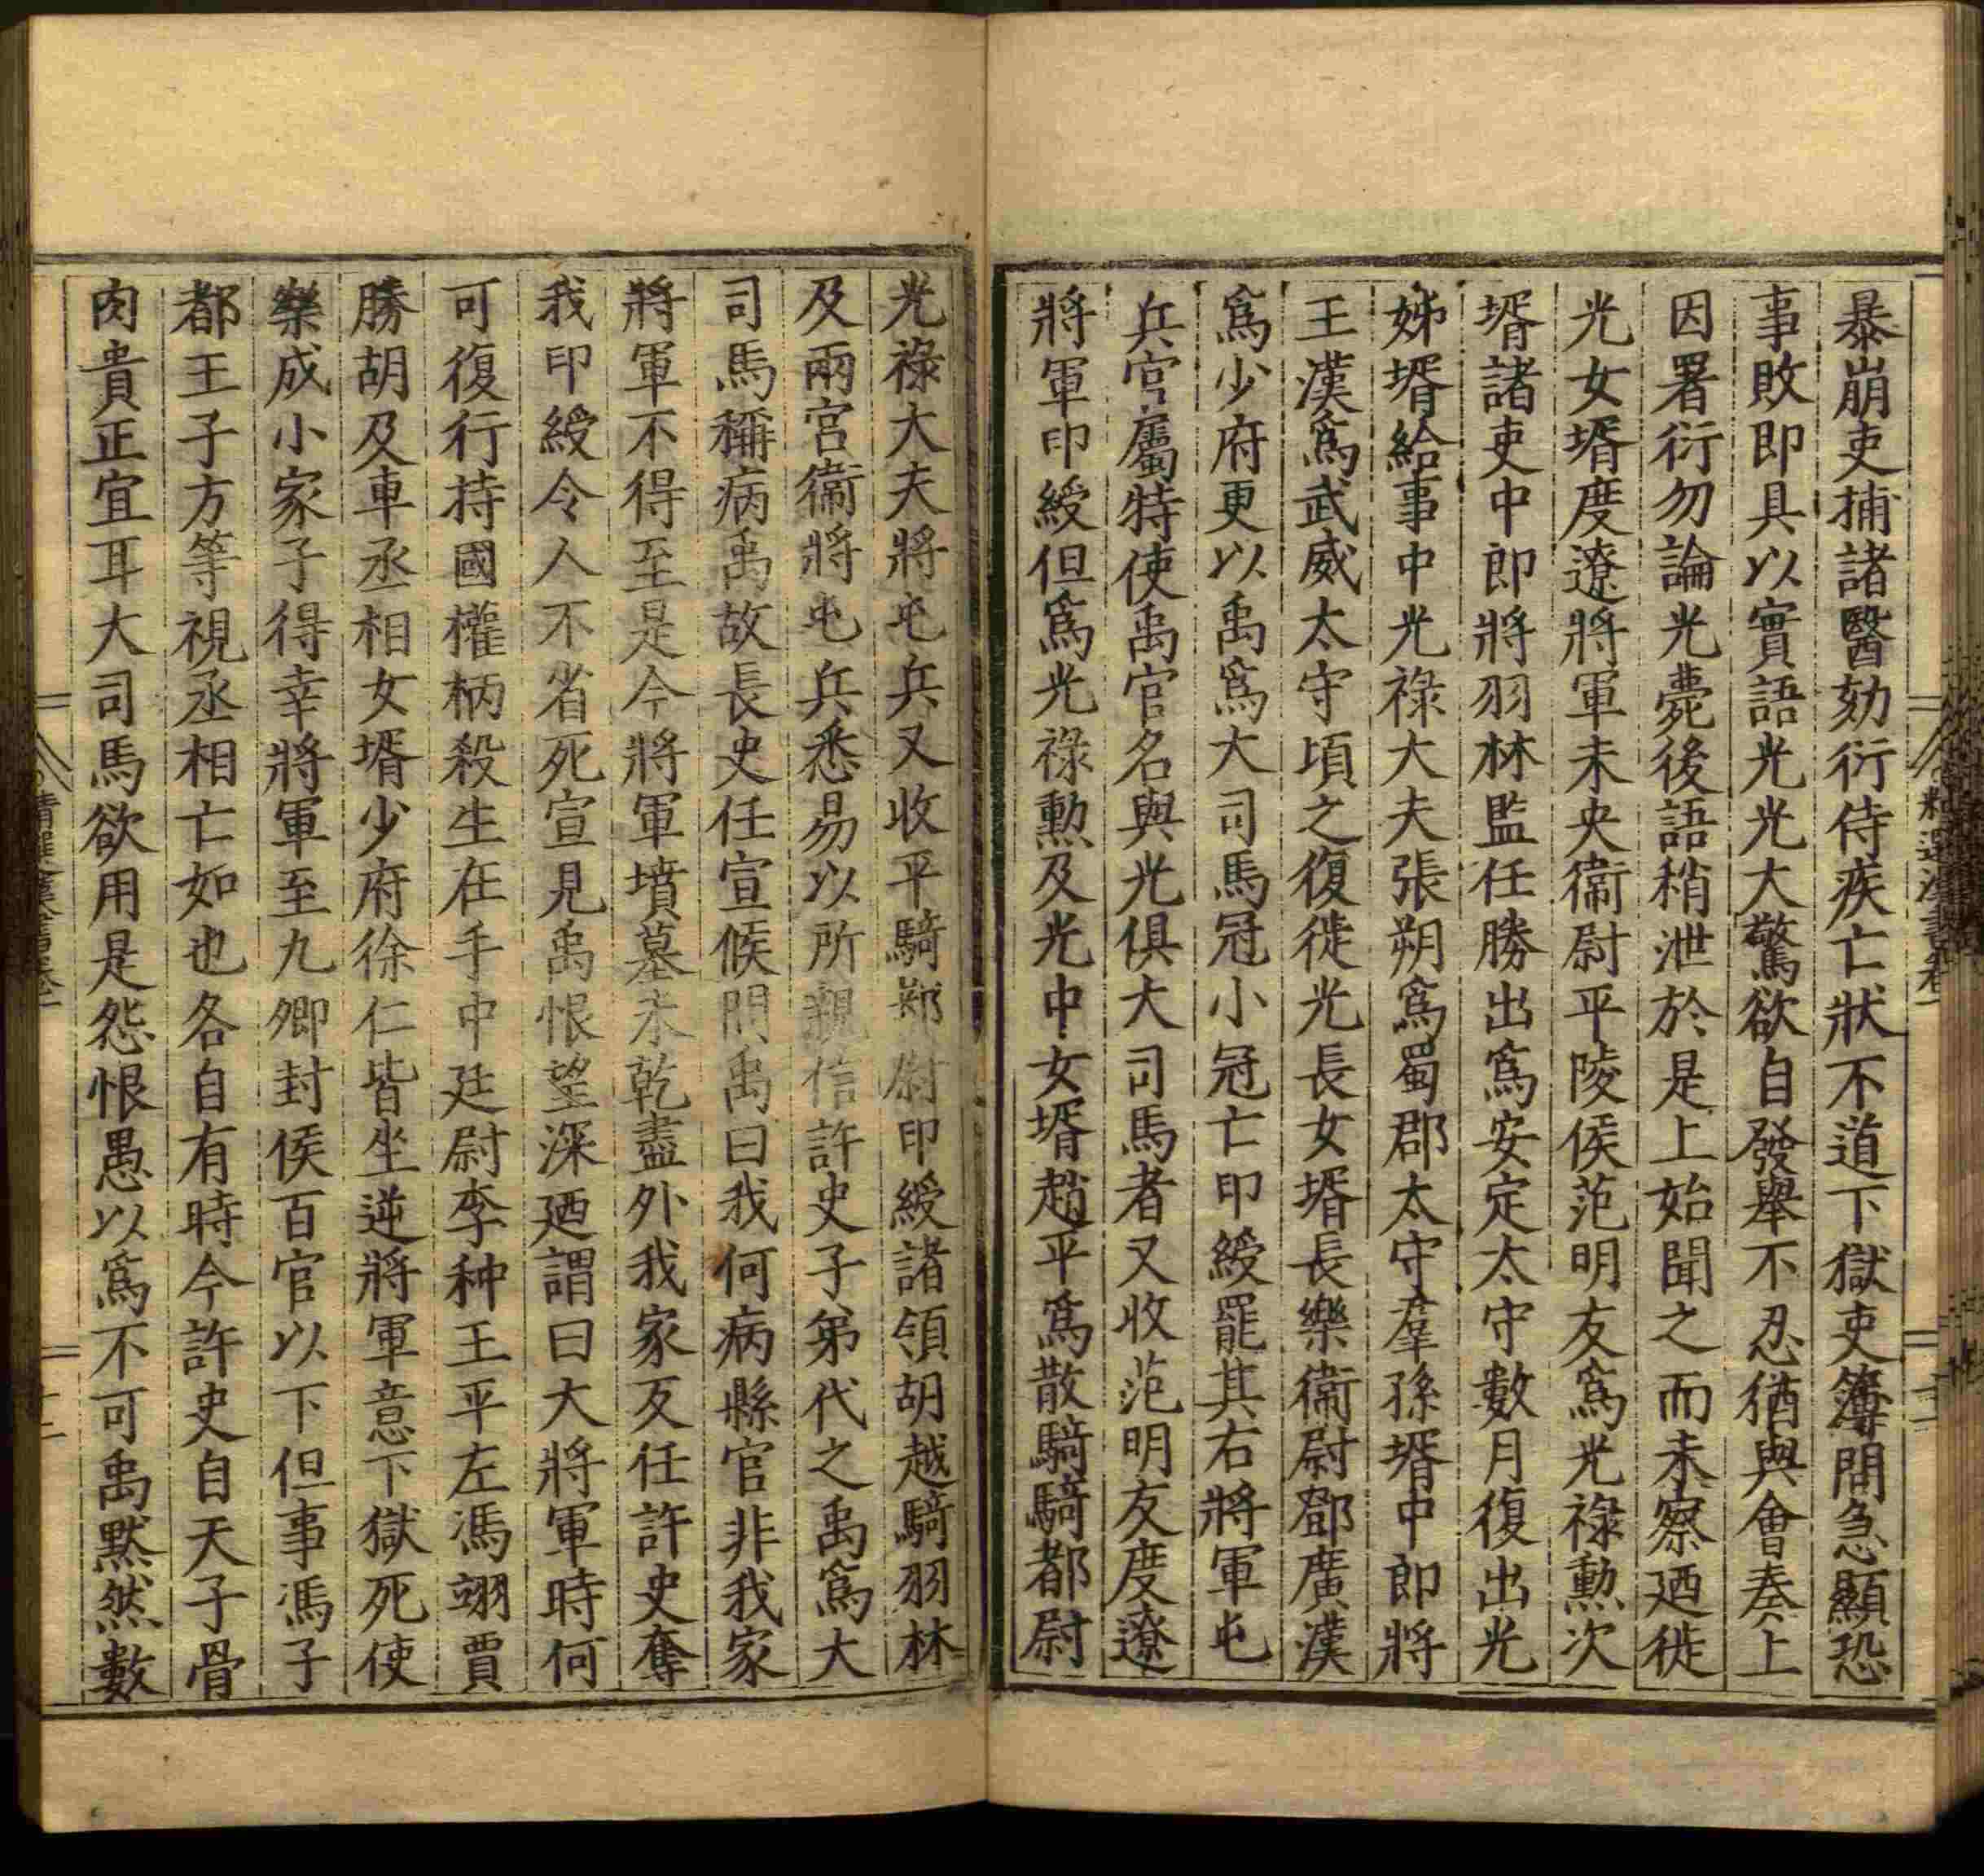 暴崩吏捕諸醫劾衍侍疾亡狀不道下獄吏簿問急顯恐
事敗即具以實語光光大驚欲自發舉不忍猶與會奏上
因署衍勿論光薨後語稍泄於是上始聞之而未察廼徙
光女壻度遼將軍未央衞尉平陵侯范明友爲光祿勳次
壻諸吏中郎將羽林監任勝出爲安定太守數月復出光
姊壻給事中光祿大夫張朔爲蜀郡太守羣孫壻中郎將
王漢爲武威太守頃之復徙光長女壻長樂衞尉鄧廣漢
爲少府更以禹爲大司馬冠小冠亡印綬罷其右將軍屯
兵官屬特使禹官名與光俱大司馬者又收范明友度遼
將軍印綬但爲光祿勳及光中女壻趙平爲散騎騎都尉
光祿大夫將屯兵又收平騎都尉印綬諸領胡越騎羽林
及兩宮衞將屯兵悉易以所親信許史子弟代之禹爲大
司馬稱病禹故長史任宣候問禹曰我何病縣官非我家
將軍不得至是今將軍墳墓未乾盡外我家反任許史奪
我印綬令人不省死宣見禹恨望深廼謂曰大將軍時何
可復行持國權柄殺生在手中廷尉李种王平左馮翊賈
勝胡及車丞相女壻少府徐仁皆坐逆將軍意下獄死使
樂成小家子得幸將軍至九卿封侯百官以下但事馮子
都王子方等視丞相亡如也各自有時今許史自天子骨
肉貴正宜耳大司馬欲用是怨恨愚以爲不可禹默然數